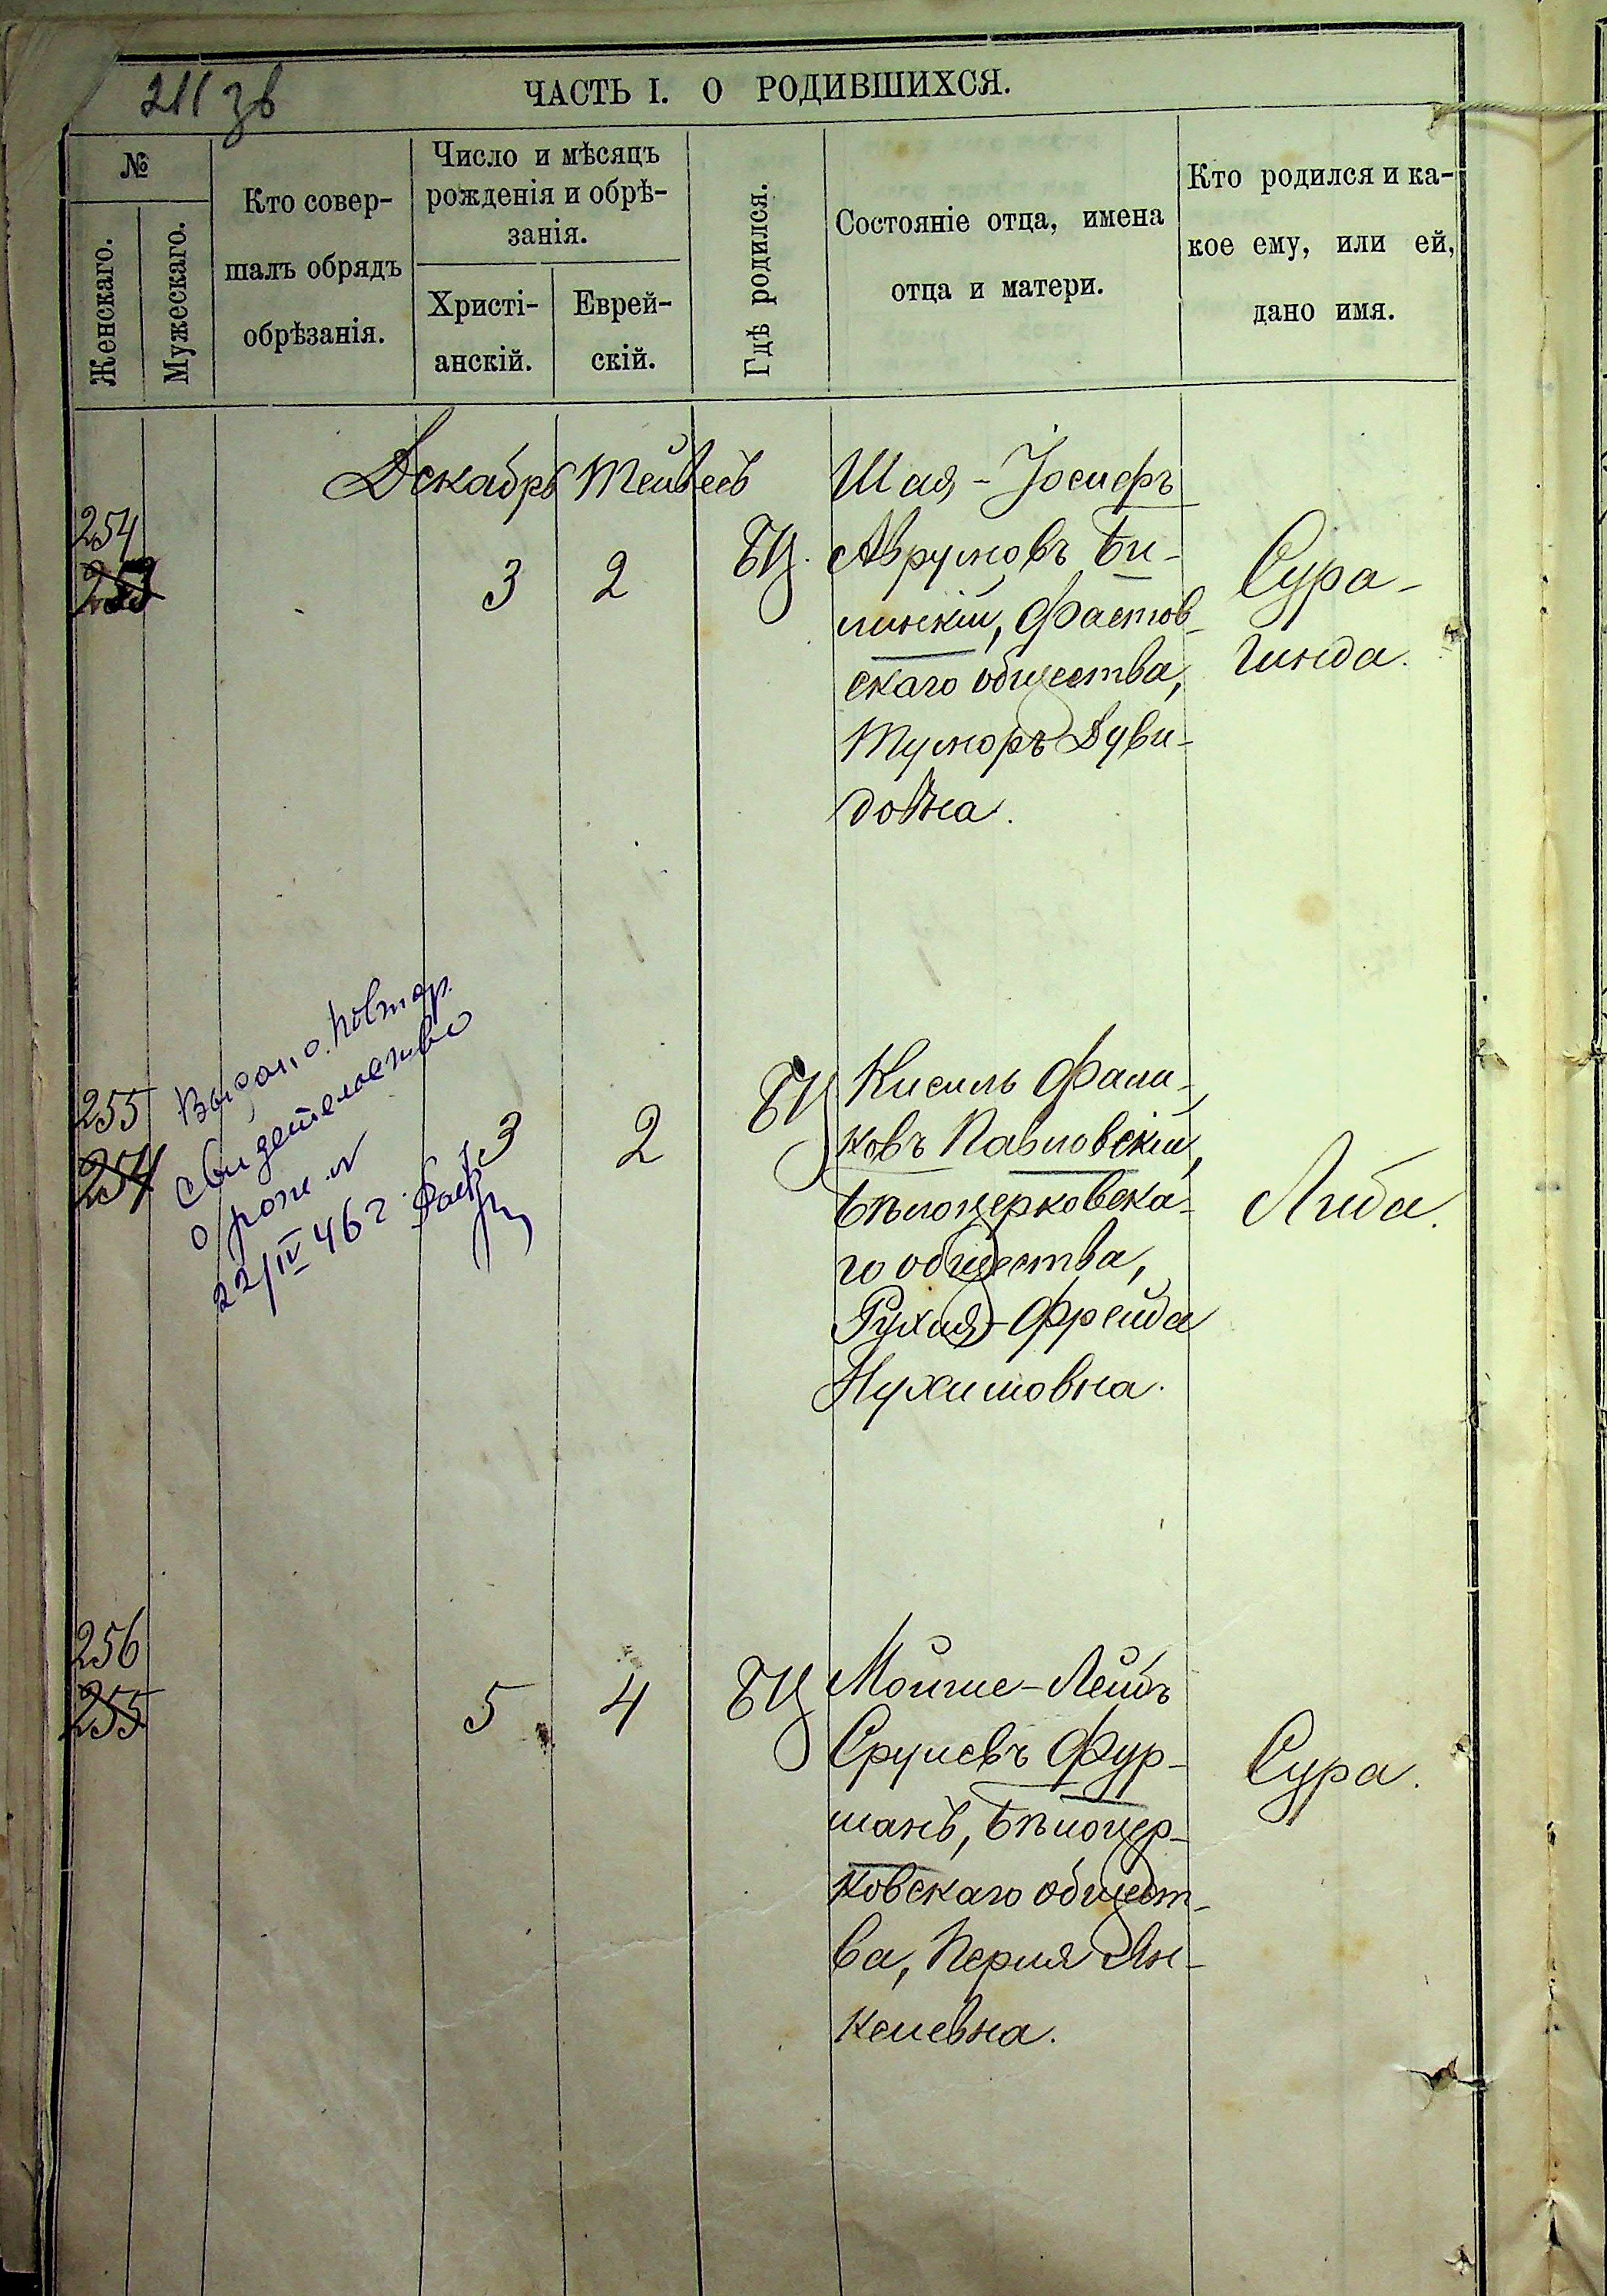 211 зв
ЧАСТЬ I. О РОДИВШИХСЯ.
№
Женскаго.
Мужескаго.
Кто совер-
шалъ обрядъ
обрѣзанія.
Число и мѣсяцъ
рожденія и обрѣ-
занія.
Христі-
анскій.
Еврей-
скій.
Гдѣ родился.
Состояніе отца, имена
отца и матери.
Кто родился и ка-
кое ему, или ей,
дано имя.
Декабрь Тейвесъ
254
253
3
2
БЦ.
Шая-Іосифъ
Аврумовъ Би-
линскій, Фастов-
скаго общества,
Дуви-
довна.
Сура-
Гинда.
255
254
Выдано повтор.
свидетельство
о рожд.
22/IV 46 г.
3
2
БЦ
Кисиль Фали-
ковъ Павловскій,
Бѣлоцерковска-
го общества,
Рухля-Фрейда
Нухимовна.
Либа.
256
255
5
4
БЦ
Мойше-Лейбъ
Срулевъ Фур-
манъ, Бѣлоцер-
ковскаго общест-
ва, Перля Ян-
келевна.
Сура.